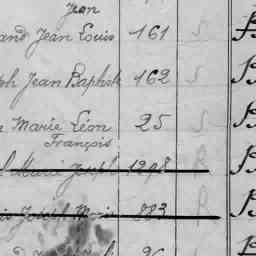 Jean
and Jean Louis 161 S B
ph Jean Baptiste 162 S B
Marie Léon 25 S B
François
Marie Joseph 1298 R B
Joseph Marie 883 R B
96